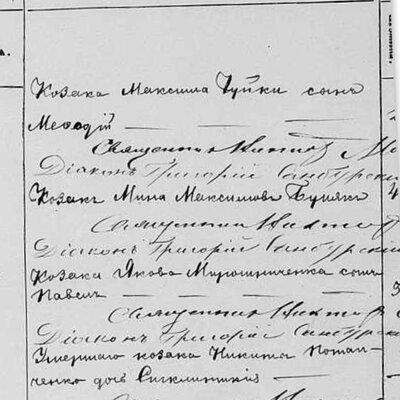 Козака Максима Гуйки сынъ
Меѳодій
Священникъ
Діаконъ Григорій Самбурскі
Козакъ Мина Максимовъ Буняк
Священникъ
Діаконъ Григорій Самбурскі
Козака Якова Мирошниченка сынъ
Павелъ
Священникъ
Діаконъ Григорій Самбурс
Умершаго козака Никиты Потап-
ченко дочь Сигклитикія